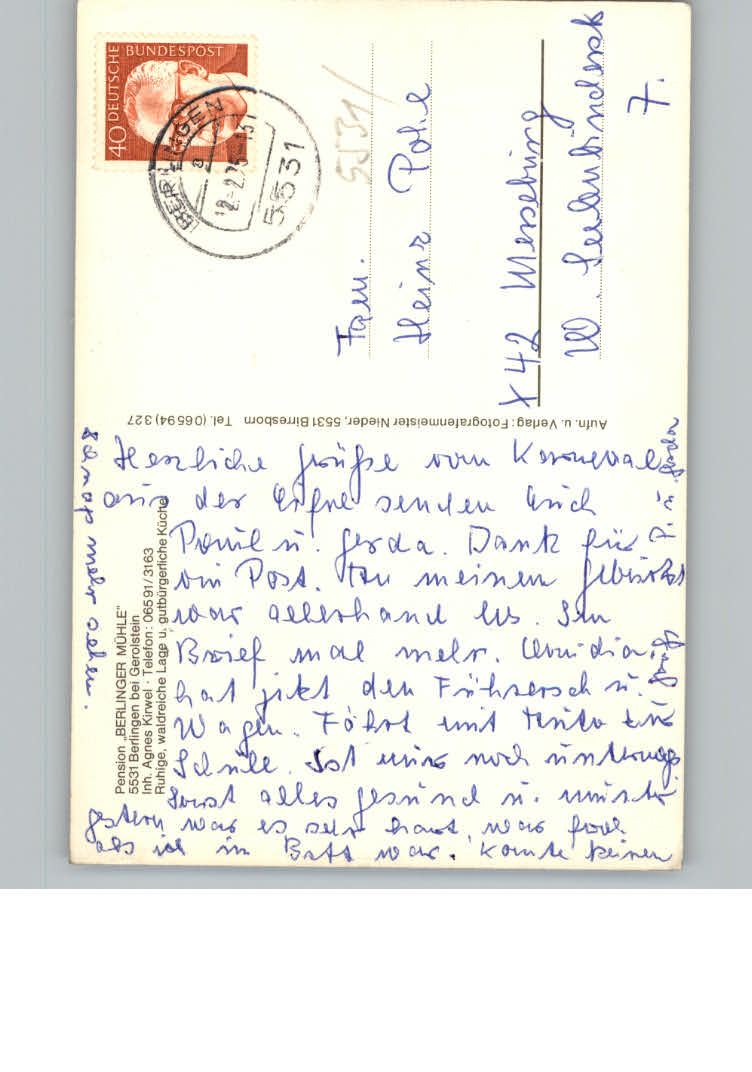 DEUTSCHE BUNDESPOST
40
BERLINGEN
a
12.-2.75-13
5531
5531
Fam.
Heinz Pohle
X 42 Merseburg
W. Seelenbinderstr
7.
Aufn. u. Verlag: Fotografenmeister Nieder, 5531 Birresborn Tel. (06594) 327
Pension „BERLINGER MÜHLE"
5531 Berlingen bei Gerolstein
Inh. Agnes Kirwel · Telefon: 06591/3163
Ruhige, waldreiche Lage u. gutbürgerliche Küche
Herzliche Grüße vom Karneval
aus der Eifel senden Euch
Paul u. Gerda. Dank für
Post. zu meinen Geburtst
war allerhand los. Im
Brief mal mehr. Claudia
hat jetzt den Führersch u.
Wagen. Fährt mit Auto zur
Schule. Ist immer noch unterwegs
Sonst alles gesund u. munter
gestern war es sehr hart, war froh
als ich im Bett war. konnte keinen
Schnaps mehr sehen.
Gruß
P. u. Gerda